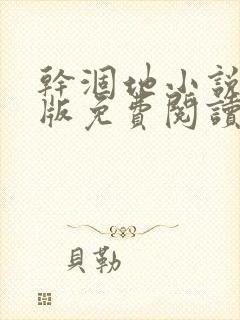 幹涸地小說
版免費閱讀
貝勒